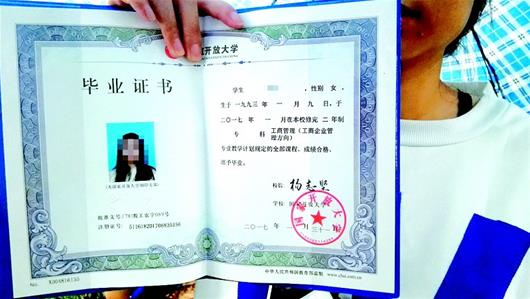 家开放大学
毕业证书
学生 ，性别 女，
生于一九九三年 一 月 九 日，于
二〇一七年 一 月在本校修完 二 年制
专 科 工商管理（工商企业管
理方向）
专业教学计划规定的全部课程，成绩合格，
准予毕业。
校长
杨志坚
学校：国家开放大学
国家开放大学
二〇一七年 一 月 三十一日
中华人民共和国教育部监制 www.chsi.com.cn